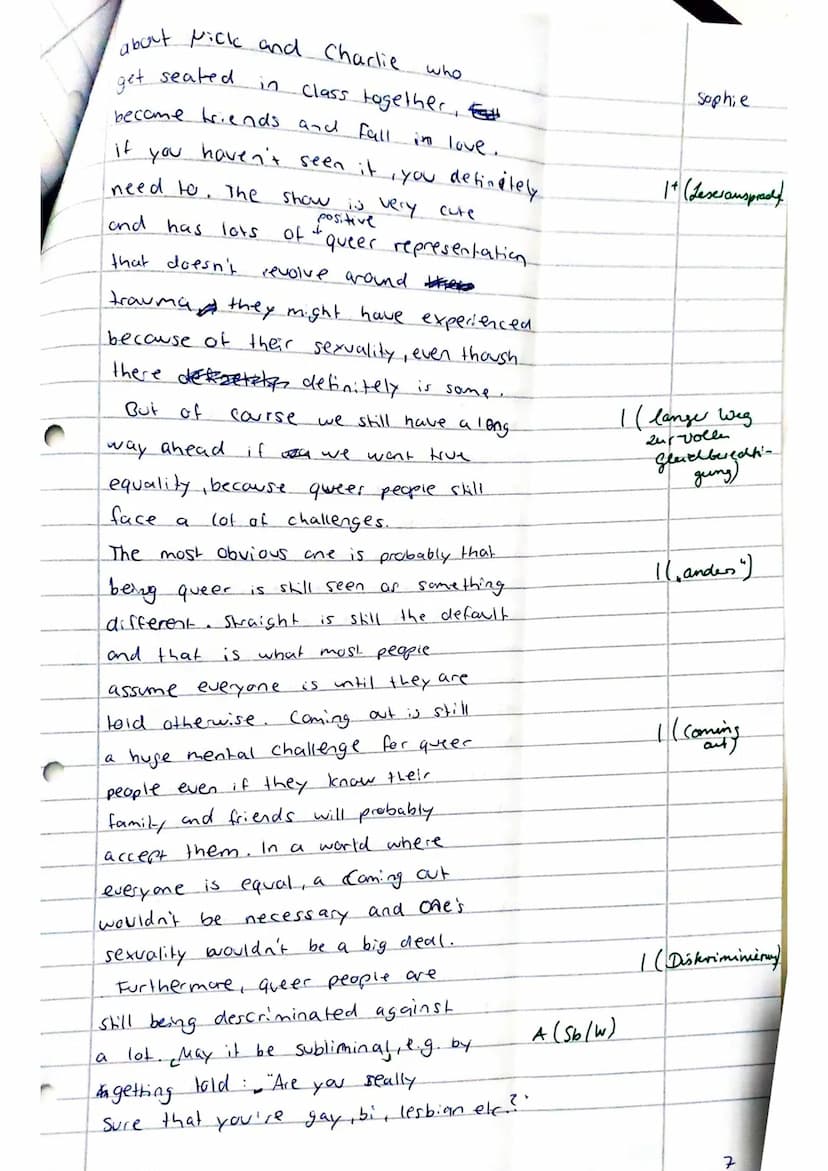 about Nick and Charlie who
get seated in class together,
Sophie
become friends and fall in love.
if you haven't seen it, you definitely
need to. The show is very cute
1+ (Leseransprache)
and has lots of positive queer representation
that doesn't revolve around
trauma they might have experienced
because of their sexuality, even though
there definitely is some.
But of course we still have a long
1 (langer Weg
zur vollen
Gleichberechti-
gung)
way ahead if we want true
equality, because queer people still
face a lot of challenges.
The most obvious one is probably that
1 („anders")
being queer is still seen as something
different. Straight is still the default
and that is what most people
assume everyone is until they are
told otherwise. Coming out is still
1 (Coming
out)
a huge mental challenge for queer
people even if they know their
family and friends will probably
accept them. In a world where
everyone is equal, a Coming out
wouldn't be necessary and one's
sexuality wouldn't be a big deal.
1 (Diskriminierung)
Furthermore, queer people are
still being descriminated against
A (Sb/W)
a lot. May it be subliminal, e.g. by
getting told: "Are you really
sure that you're gay, bi, lesbian etc.?"
7